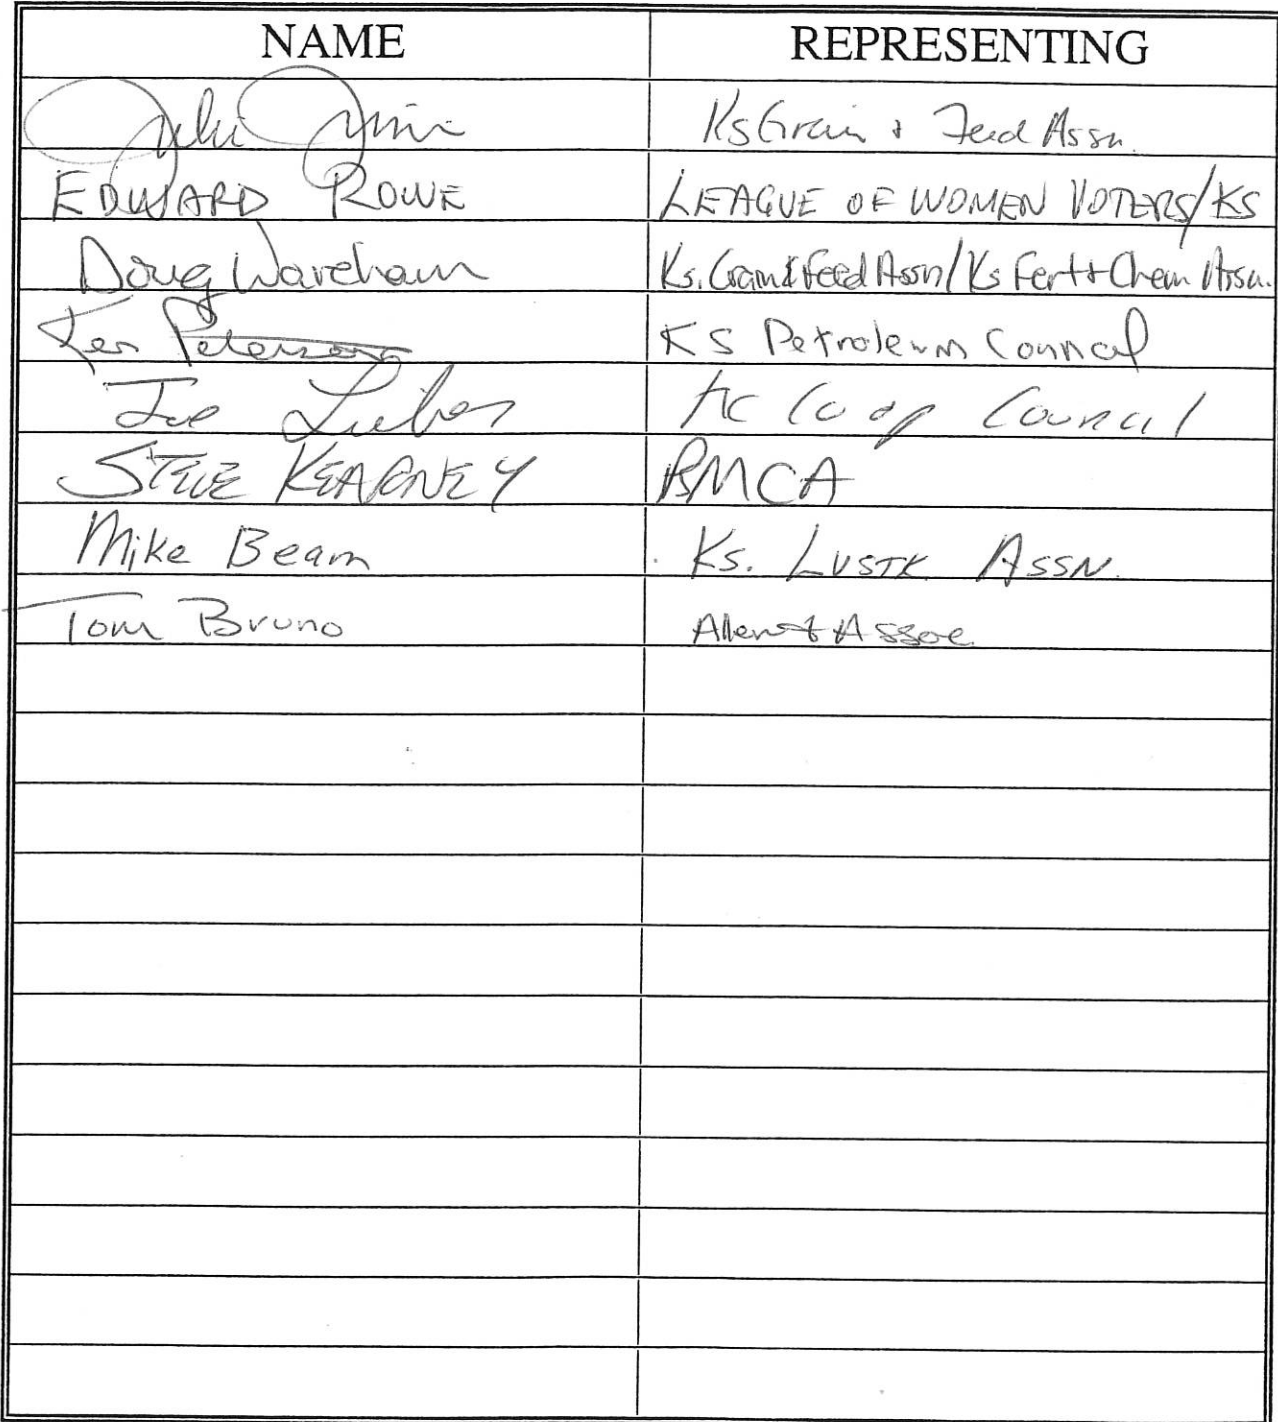 NAME REPRESENTING
Julie Ks Grain + Feed Assn.
EDWARD ROWE LEAGUE OF WOMEN VOTERS/KS
Doug Wareham Ks. Grain & Feed Assn/Ks Fert + Chem Assn.
Ken Peterson KS Petroleum Council
Joe Lieber KC Co op Council
STEVE KEARNEY PMCA
Mike Beam Ks. LVSTK ASSN.
Tom Bruno Allen & Assoc.